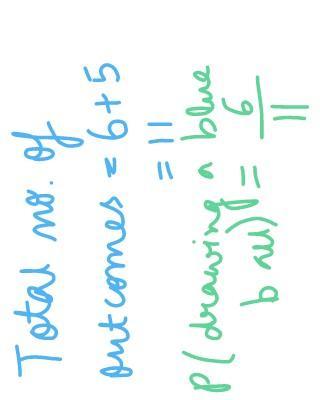 Total no. of
outcomes = 6 + 5
= 11
P(drawing a blue
ball) = 6/11